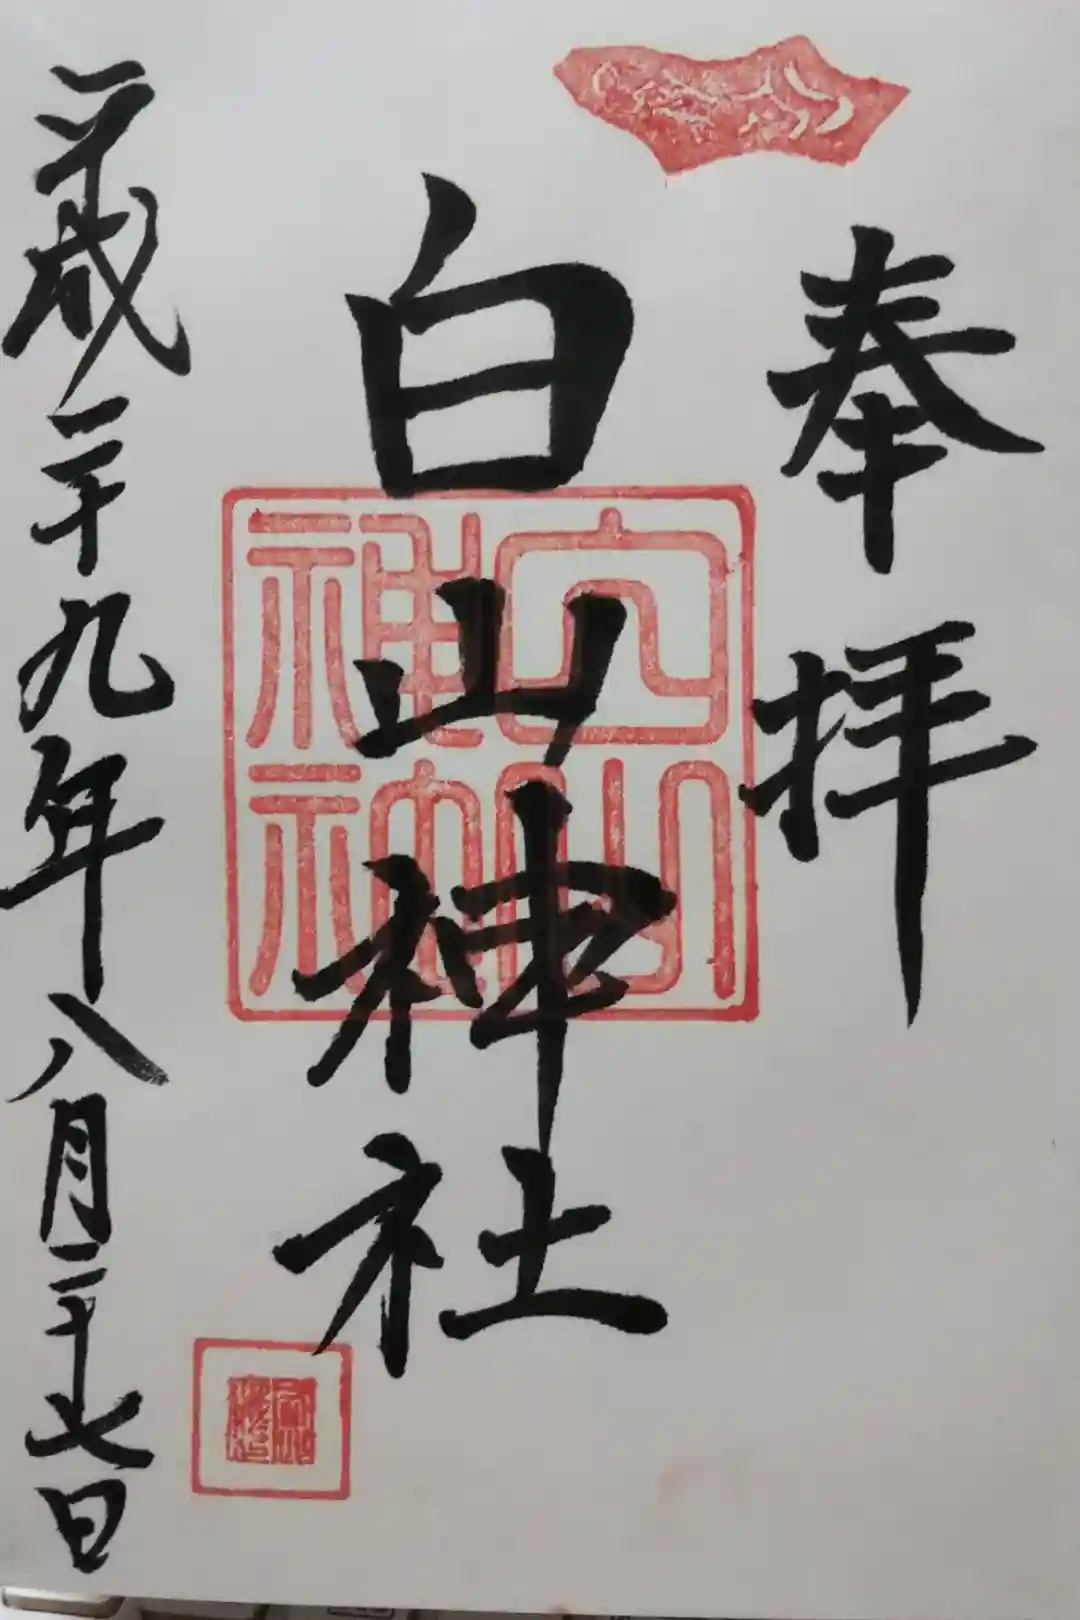 奉拝
白山神社
平成二十九年八月二十七日